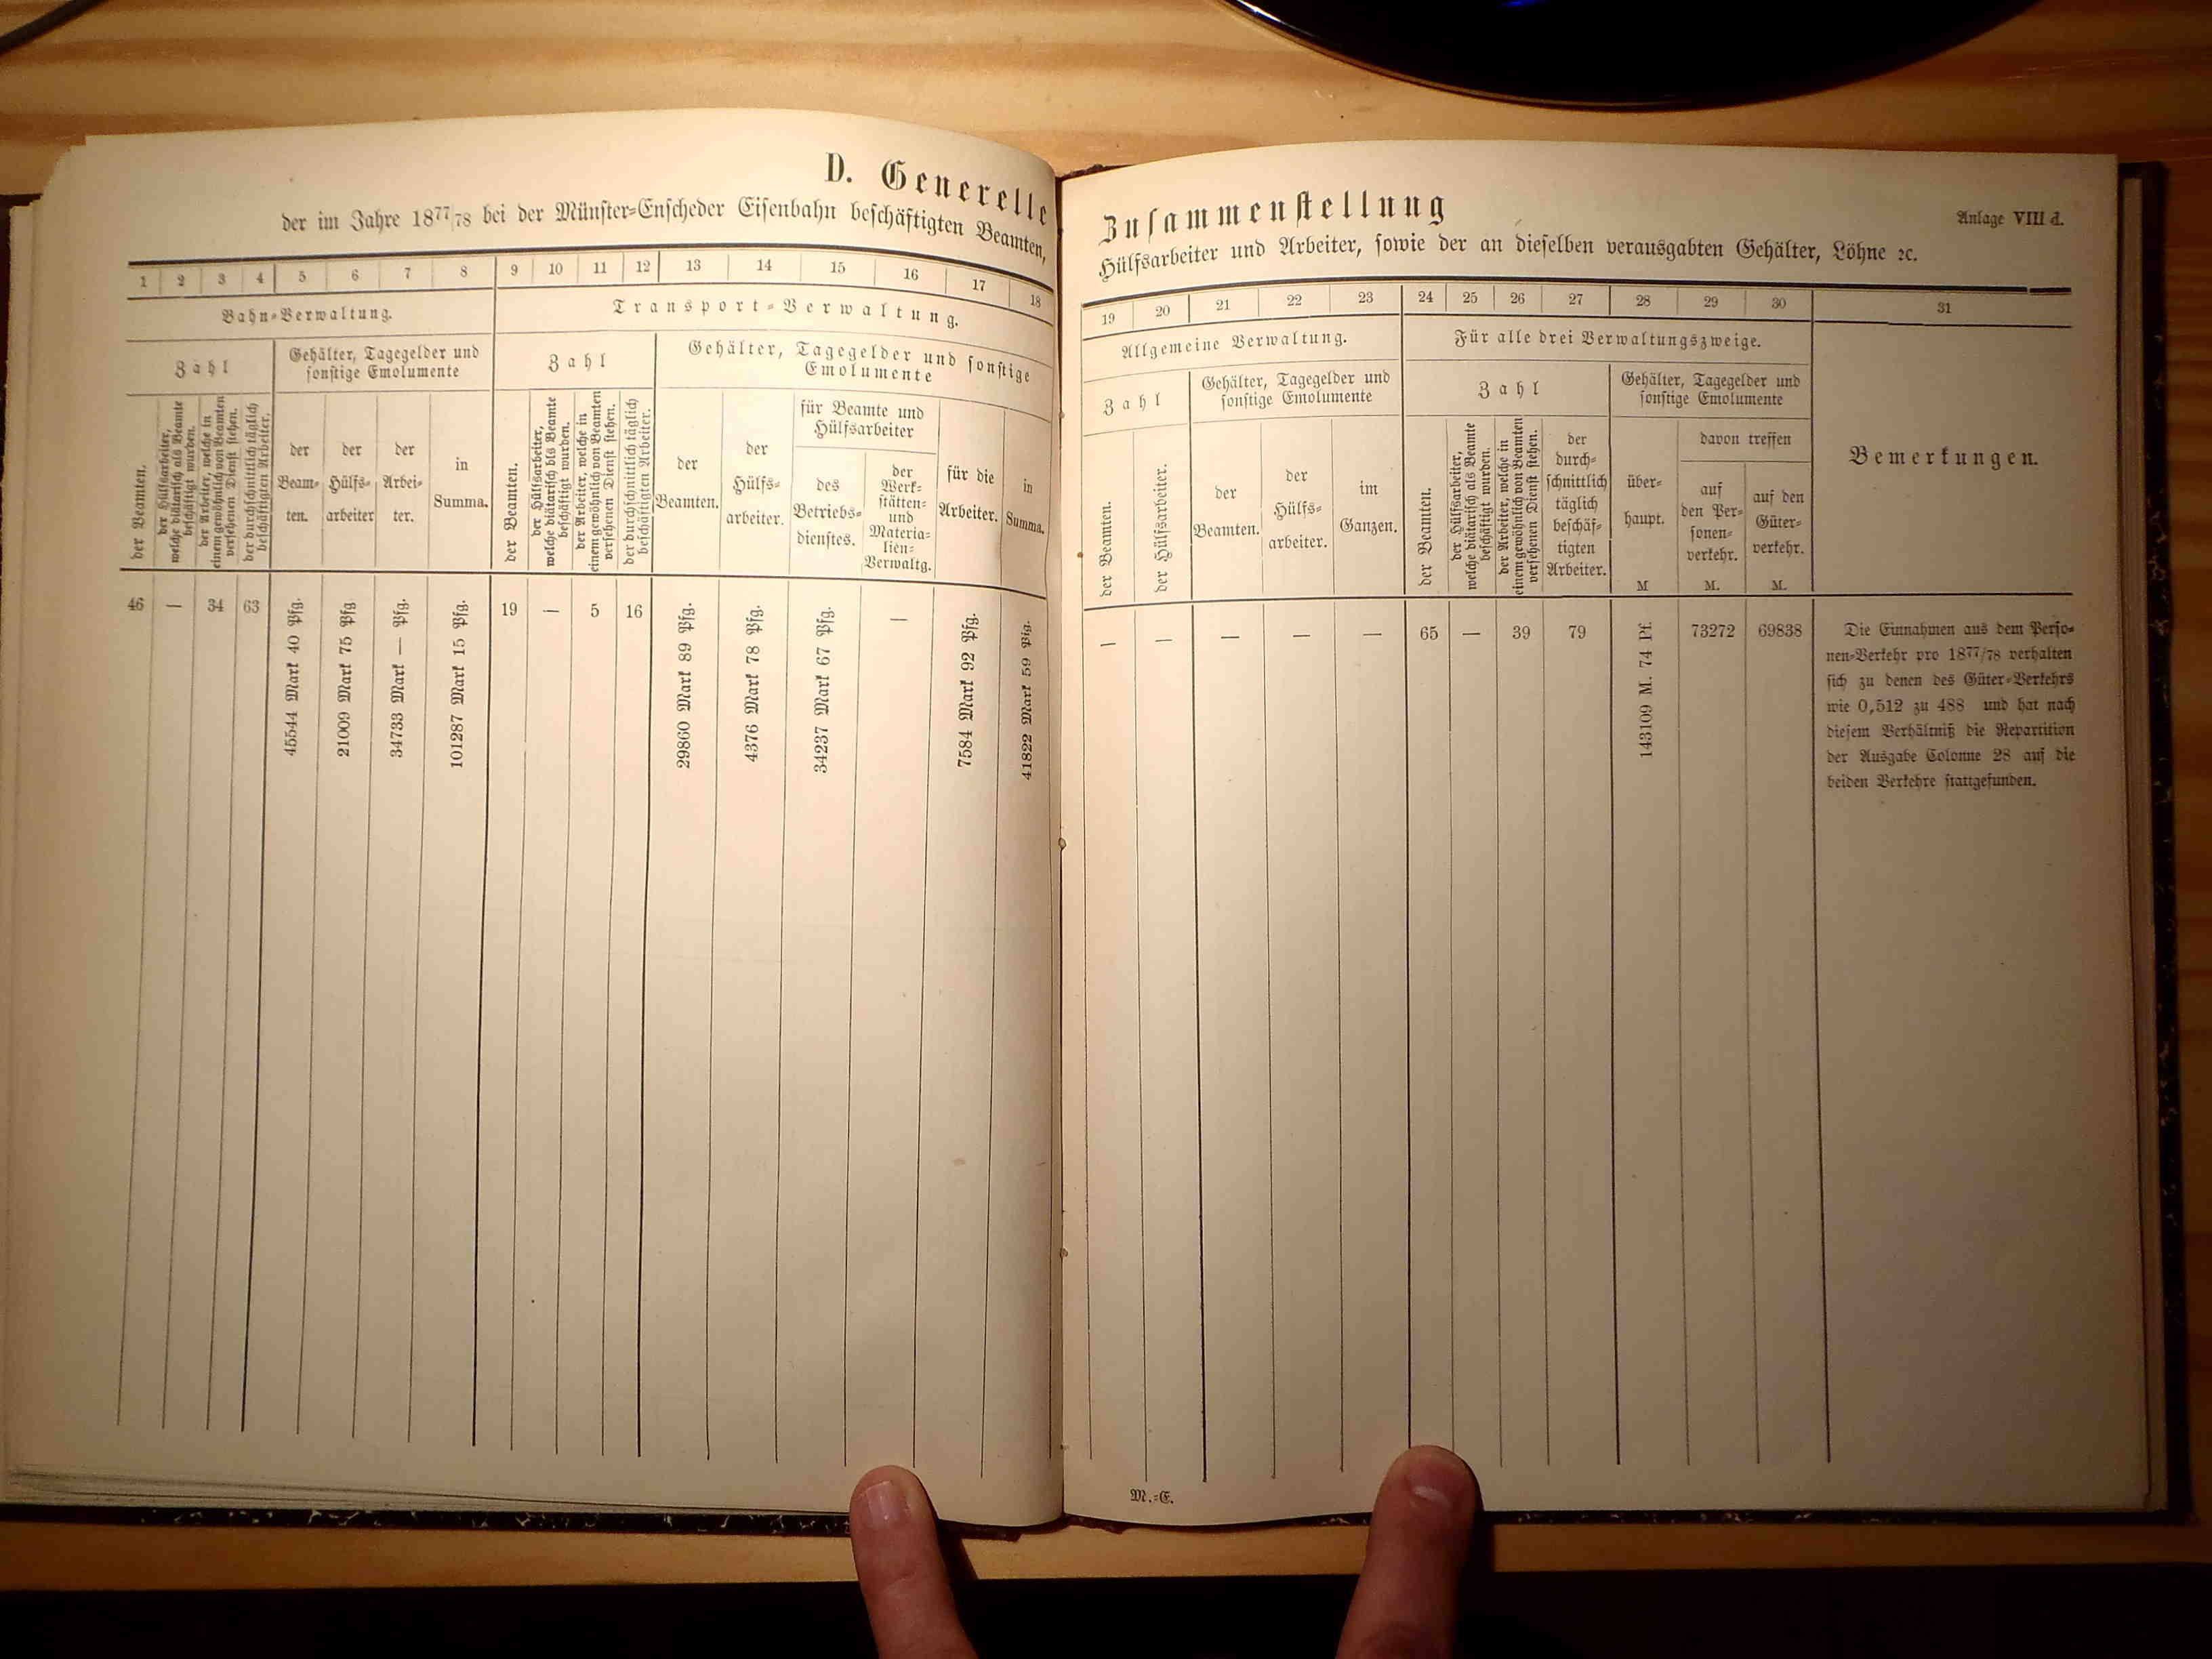 D. Generelle
der im Jahre 1877/78 bei der Münster-Enscheder Eisenbahn beschäftigten Beamten,
1 2 3 4 5 6 7 8 9 10 11 12 13 14 15 16 17 18
Bahn-Verwaltung.
Transport-Verwaltung.
Zahl
Gehälter, Tagegelder und
sonstige Emolumente
Zahl
Gehälter, Tagegelder und sonstige
Emolumente
der Beamten.
der Hülfsarbeiter,
welche diätarisch als Beamte
beschäftigt wurden.
der Arbeiter, welche in
einem gewöhnlich von Beamten
versehenen Dienst stehen.
der durchschnittlich täglich
beschäftigten Arbeiter.
der
Beam-
ten.
der
Hülfs-
arbeiter
der
Arbei-
ter.
in
Summa.
der Beamten.
der Hülfsarbeiter,
welche diätarisch bls Beamte
beschäftigt wurden.
der Arbeiter, welche in
einem gewöhnlich von Beamten
versehenen Dienst stehen.
der durchschnittlich täglich
beschäftigten Arbeiter.
der
Beamten.
der
Hülfs-
arbeiter.
für Beamte und
Hülfsarbeiter
des
Betriebs-
dienstes.
der
Werk-
stätten-
und
Materia-
lien-
Verwaltg.
für die
Arbeiter.
in
Summa.
46
—
34
63
45544 Mark 40 Pfg.
21009 Mark 75 Pfg
34733 Mark — Pfg.
101287 Mark 15 Pfg.
19
—
5
16
29860 Mark 89 Pfg.
4376 Mark 78 Pfg.
34237 Mark 67 Pfg.
—
7584 Mark 92 Pfg.
41822 Mark 59 Pfg.
Zusammenstellung
Anlage VIII d.
Hülfsarbeiter und Arbeiter, sowie der an dieselben verausgabten Gehälter, Löhne ꝛc.
19 20 21 22 23 24 25 26 27 28 29 30 31
Allgemeine Verwaltung.
Für alle drei Verwaltungszweige.
Zahl
Gehälter, Tagegelder und
sonstige Emolumente
Zahl
Gehälter, Tagegelder und
sonstige Emolumente
der Beamten.
der Hülfsarbeiter.
der
Beamten.
der
Hülfs-
arbeiter.
im
Ganzen.
der Beamten.
der Hülfsarbeiter,
welche diätarisch als Beamte
beschäftigt wurden.
der Arbeiter, welche in
einem gewöhnlich von Beamten
versehenen Dienst stehen.
der
durch-
schnittlich
täglich
beschäf-
tigten
Arbeiter.
über-
haupt.
M
davon treffen
auf
den Per-
sonen-
verkehr.
M.
auf den
Güter-
verkehr.
M.
Bemerkungen.
—
—
—
—
—
65
—
39
79
143109 M. 74 Pf.
73272
69838
Die Einnahmen aus dem Perso-
nen-Verkehr pro 1877/78 verhalten
sich zu denen des Güter-Verkehrs
wie 0,512 zu 488 und hat nach
diesem Verhältniß die Repartition
der Ausgabe Colonne 28 auf die
beiden Verkehre stattgefunden.
M.-E.